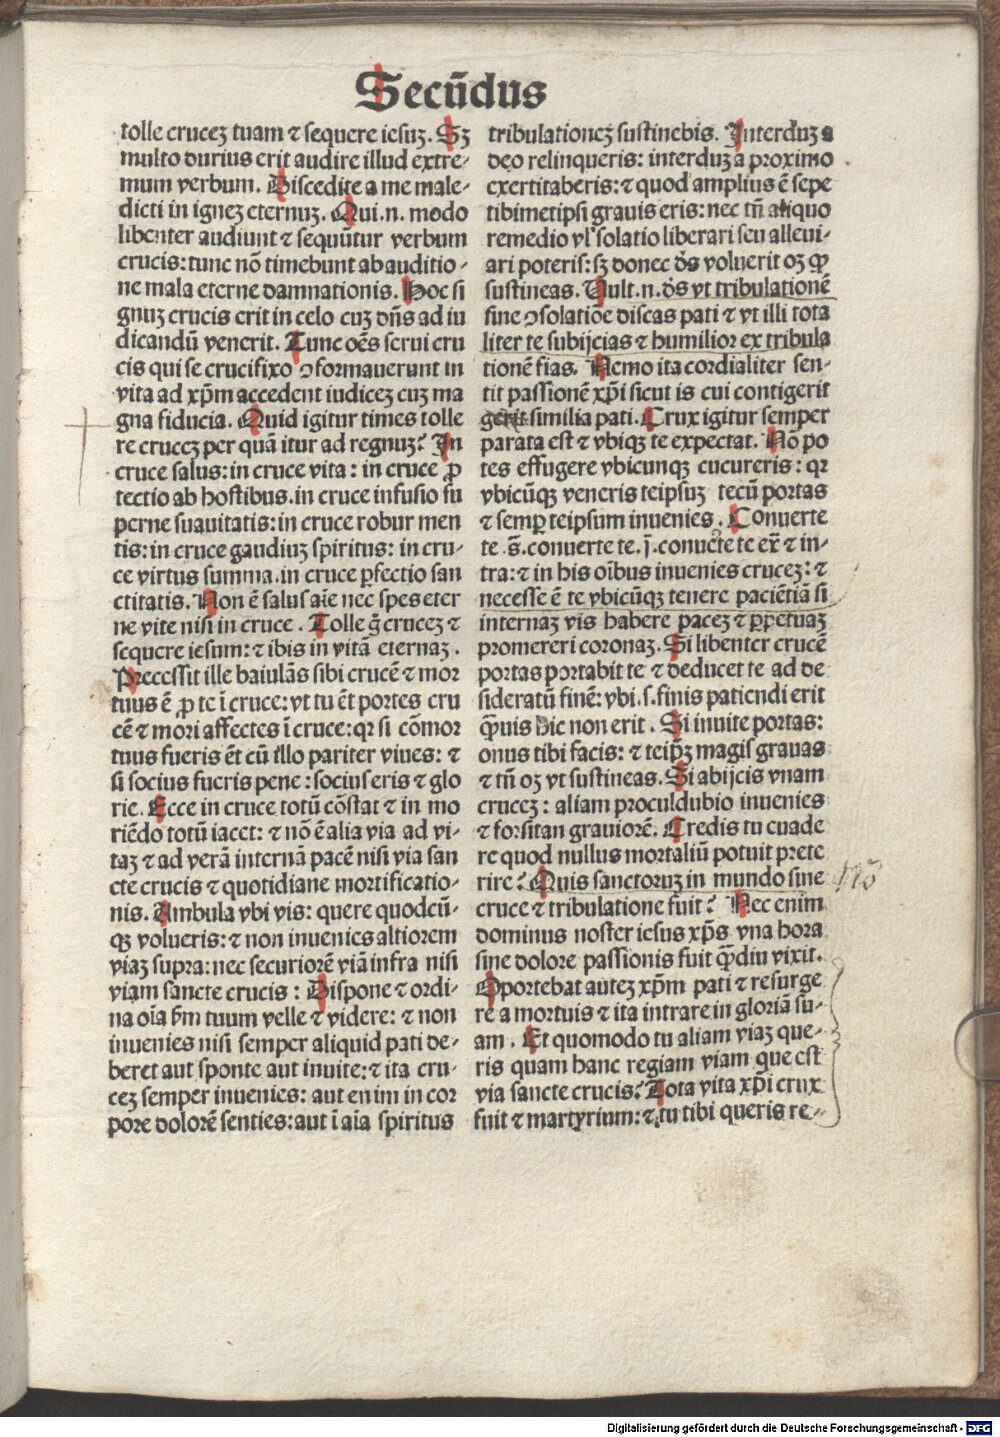 Secūdus
tolle crucez tuam ⁊ sequere iesuz. Sz
multo durius erit audire illud extre-
mum verbum. Discedite a me male-
dicti in ignez eternuz. Qui .n. modo
libenter audiunt ⁊ sequūtur verbum
crucis: tunc nō timebunt ab auditio-
ne mala eterne damnationis. Hoc si
gnuz crucis erit in celo cuz dn̄s ad iu
dicandū venerit. Tunc oēs serui cru
cis qui se crucifixo ꝯformauerunt in
vita ad xp̄m accedent iudicez cuz ma
gna fiducia. Quid igitur times tolle
re crucez per quā itur ad regnuz? In
cruce salus: in cruce vita: in cruce ꝓ
tectio ab hostibus. in cruce infusio su
perne suauitatis: in cruce robur men
tis: in cruce gaudiuz spiritus: in cru-
ce virtus summa. in cruce ꝑfectio san
ctitatis. Non ē salus aīe nec spes eter
ne vite nisi in cruce. Tolle g̊ crucez ⁊
sequere iesum: ⁊ ibis in vitā eternaz.
Precessit ille baiulās sibi crucē ⁊ mor
tuus ē ꝓ te ī cruce: vt tu ēt portes cru
cē ⁊ mori affectes ī cruce: qꝛ si cōmor
tuus fueris ēt cū illo pariter viues: ⁊
si socius fueris pene: socius eris ⁊ glo
rie. Ecce in cruce totū cōstat ⁊ in mo
riēdo totū iacet: ⁊ nō ē alia via ad vi-
taz ⁊ ad verā internā pacē nisi via san
cte crucis ⁊ quotidiane mortificatio-
nis. Ambula vbi vis: quere quodcū-
qꝫ volueris: ⁊ non inuenies altiorem
viaz supra: nec securiorē viā infra nisi
viam sancte crucis: Dispone ⁊ ordi-
na oīa ẜm tuum velle ⁊ videre: ⁊ non
inuenies nisi semper aliquid pati de-
beret aut sponte aut inuite: ⁊ ita cru-
cez semper inuenies: aut enim in cor
pore dolorē senties: aut ī aīa spiritus
tribulationez sustinebis. Interduz a
deo relinqueris: interduz a proximo
exertitaberis: ⁊ quod amplius ē sepe
tibimetipsi grauis eris: nec tn̄ aliquo
remedio vl' solatio liberari seu alleui-
ari poteris: sz donec d̄s voluerit oz ꝙ
sustineas. Vult .n. d̄s vt tribulationē
sine ꝯsolatiōe discas pati ⁊ vt illi tota
liter te subijcias ⁊ humilior ex tribula
tionē fias. Nemo ita cordialiter sen-
tit passionē xp̄i sicut is cui contigerit
gerit similia pati. Crux igitur semper
parata est ⁊ vbiqꝫ te expectat. Nō po
tes effugere vbicunqꝫ cucureris: qꝛ
vbicūqꝫ veneris teipsuz tecū portas
⁊ semꝑ teipsum inuenies. Conuerte
te .s̄. conuerte te .j. conuerte te ex̄ ⁊ in-
tra: ⁊ in his oībus inuenies crucez: ⁊
necesse ē te vbicūqꝫ tenere paciētiā si
internaz vis habere pacez ⁊ ꝑpetuaz
promereri coronaz. Si libenter crucē
portas portabit te ⁊ deducet te ad de
sideratū finē: vbi .s. finis patiendi erit
q̄uis hic non erit. Si inuite portas:
onus tibi facis: ⁊ teip̄z magis grauas
⁊ tn̄ oz vt sustineas. Si abijcis vnam
crucez: aliam proculdubio inuenies
⁊ forsitan grauiorē. Credis tu euade
re quod nullus mortaliū potuit prete
rire? Quis sanctoruz in mundo sine
cruce ⁊ tribulatione fuit? Nec enim
dominus noster iesus xp̄s vna hora
sine dolore passionis fuit q̄diu vixit.
Oportebat autez xp̄m pati ⁊ resurge
re a mortuis ⁊ ita intrare in gloriā su-
am. Et quomodo tu aliam viaz que-
ris quam hanc regiam viam que est
via sancte crucis? Tota vita xp̄i crux
fuit ⁊ martyrium: ⁊ tu tibi queris re-
Digitalisierung gefördert durch die Deutsche Forschungsgemeinschaft - DFG